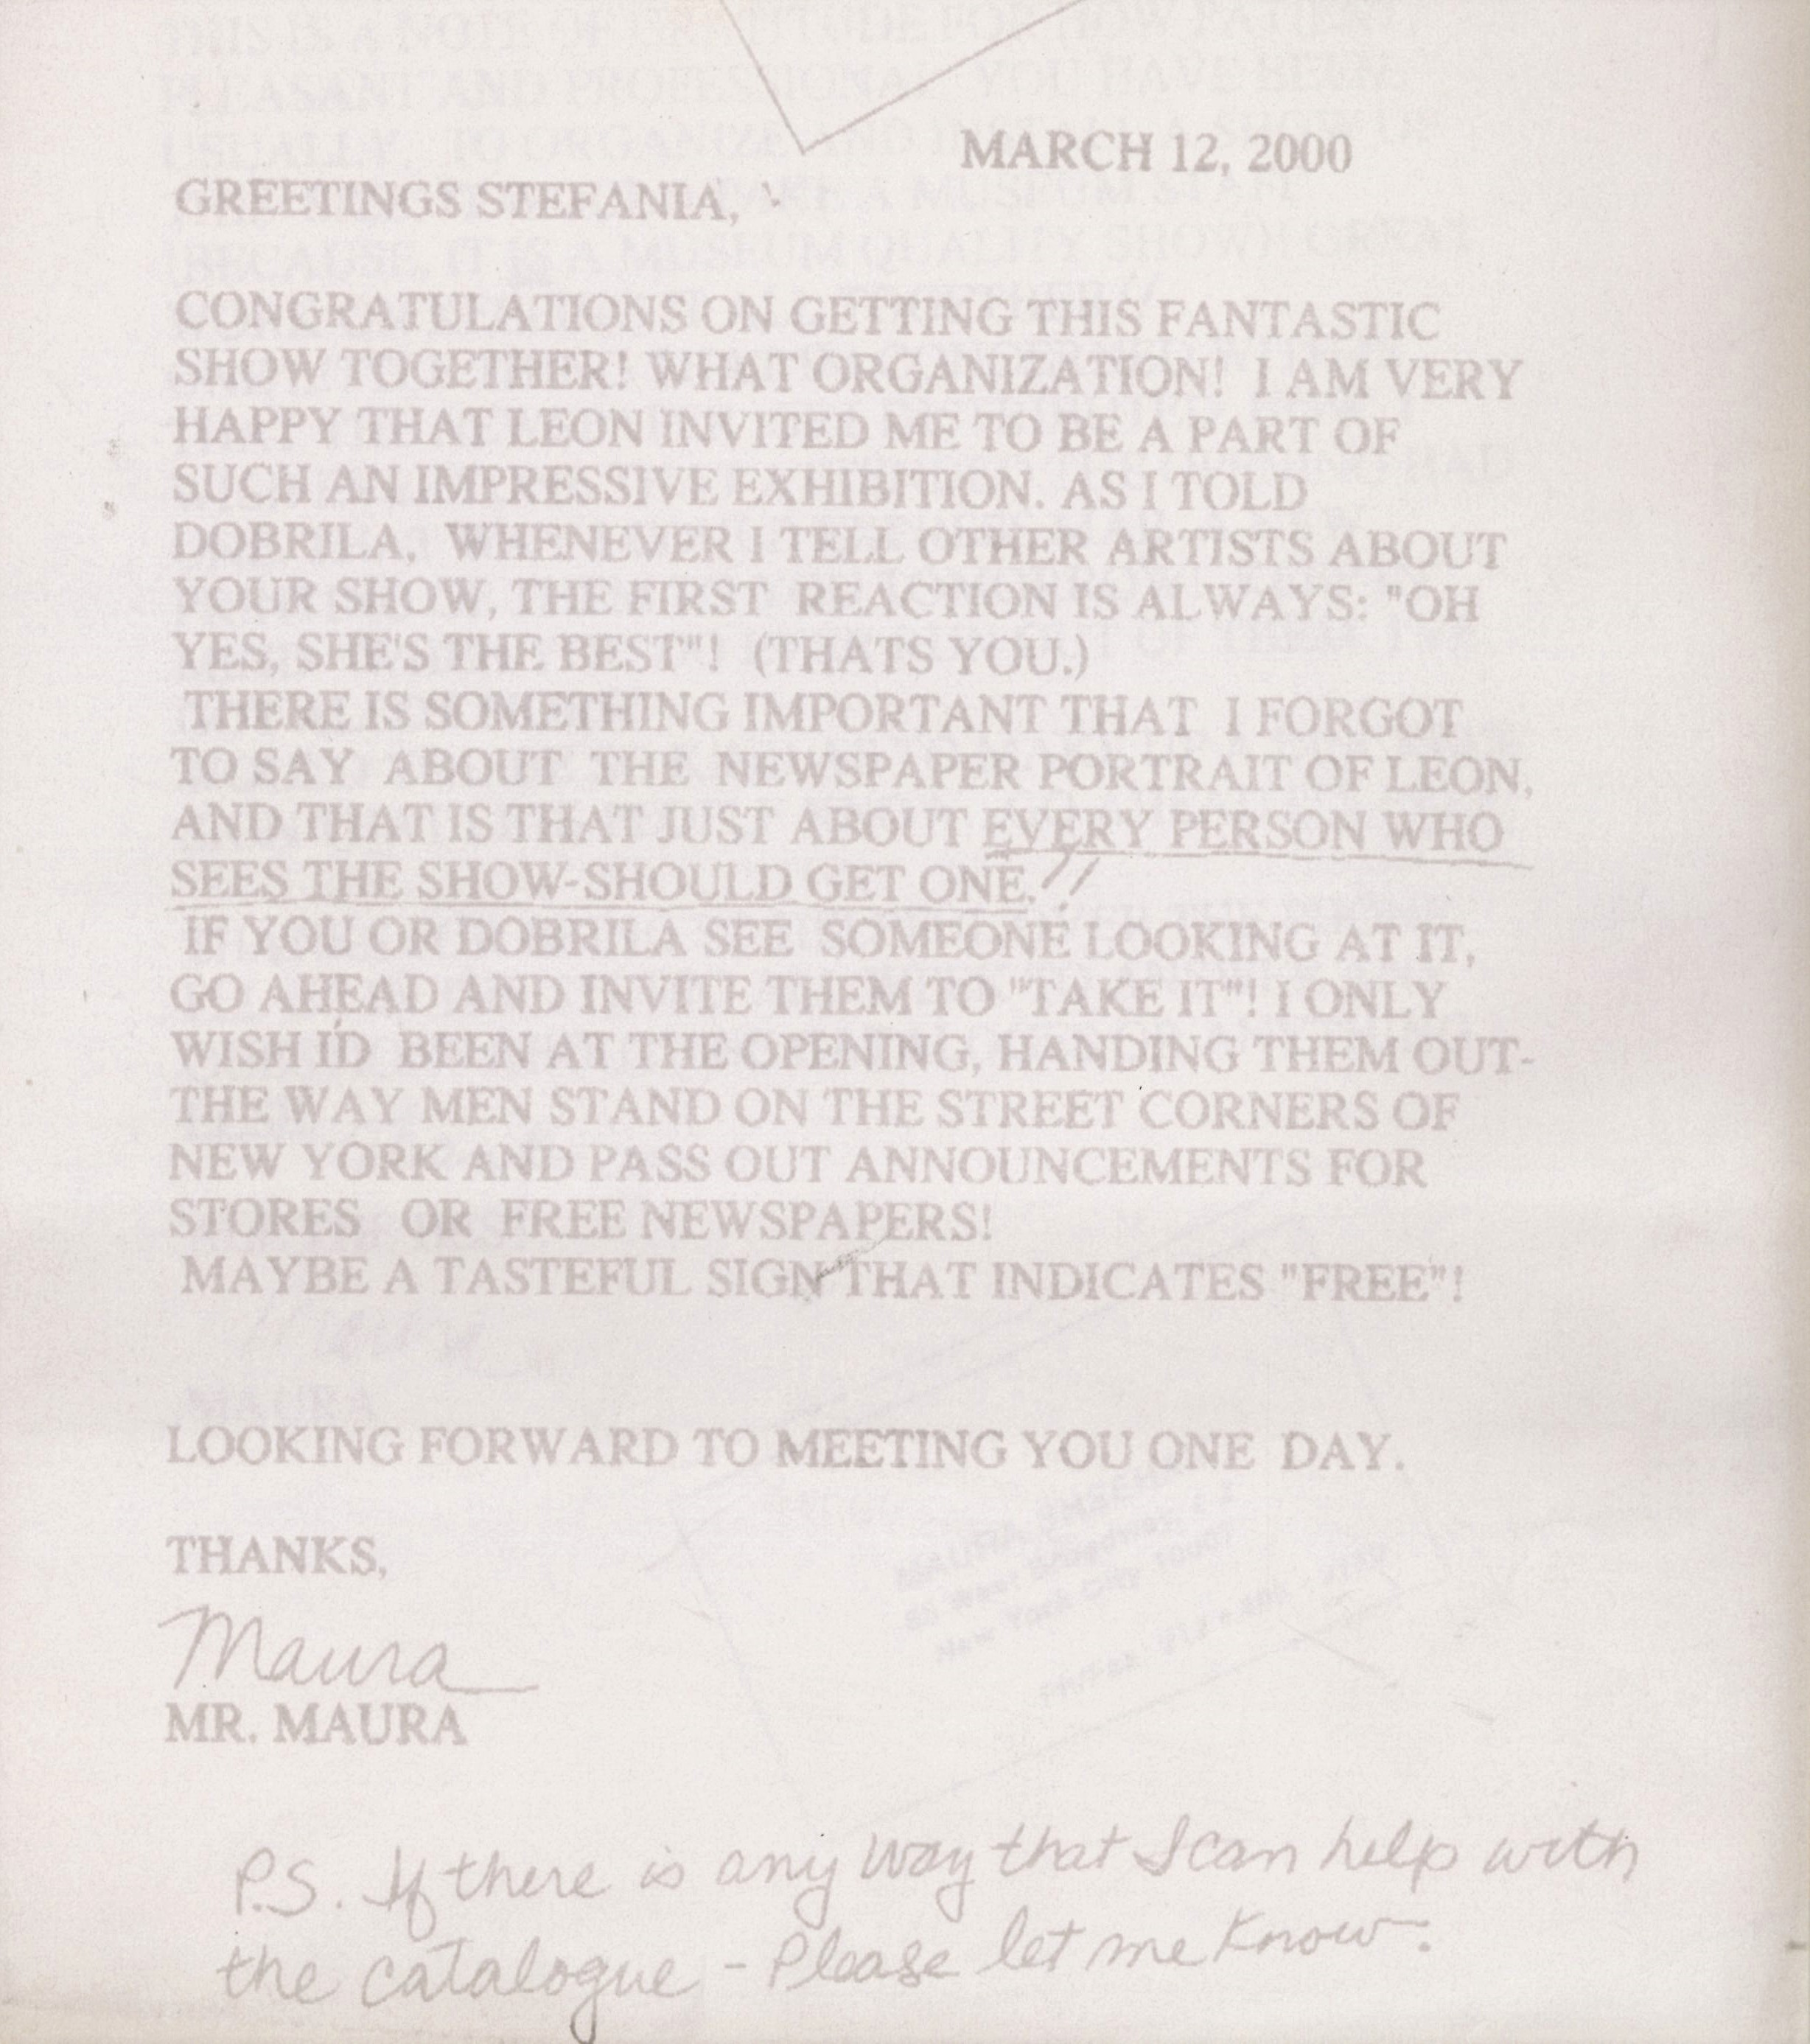 MARCH 12, 2000
GREETINGS STEFANIA,
CONGRATULATIONS ON GETTING THIS FANTASTIC
SHOW TOGETHER! WHAT ORGANIZATION! I AM VERY
HAPPY THAT LEON INVITED ME TO BE A PART OF
SUCH AN IMPRESSIVE EXHIBITION. AS I TOLD
DOBRILA, WHENEVER I TELL OTHER ARTISTS ABOUT
YOUR SHOW, THE FIRST REACTION IS ALWAYS: "OH
YES, SHE'S THE BEST"! (THATS YOU.)
THERE IS SOMETHING IMPORTANT THAT I FORGOT
TO SAY ABOUT THE NEWSPAPER PORTRAIT OF LEON,
AND THAT IS THAT JUST ABOUT EVERY PERSON WHO
SEES THE SHOW-SHOULD GET ONE.!!
IF YOU OR DOBRILA SEE SOMEONE LOOKING AT IT,
GO AHEAD AND INVITE THEM TO "TAKE IT"! I ONLY
WISH I'D BEEN AT THE OPENING, HANDING THEM OUT-
THE WAY MEN STAND ON THE STREET CORNERS OF
NEW YORK AND PASS OUT ANNOUNCEMENTS FOR
STORES OR FREE NEWSPAPERS!
MAYBE A TASTEFUL SIGN THAT INDICATES "FREE"!
LOOKING FORWARD TO MEETING YOU ONE DAY.
THANKS,
Maura
MR. MAURA
P.S. If there is any way that I can help with
the catalogue - Please let me know.